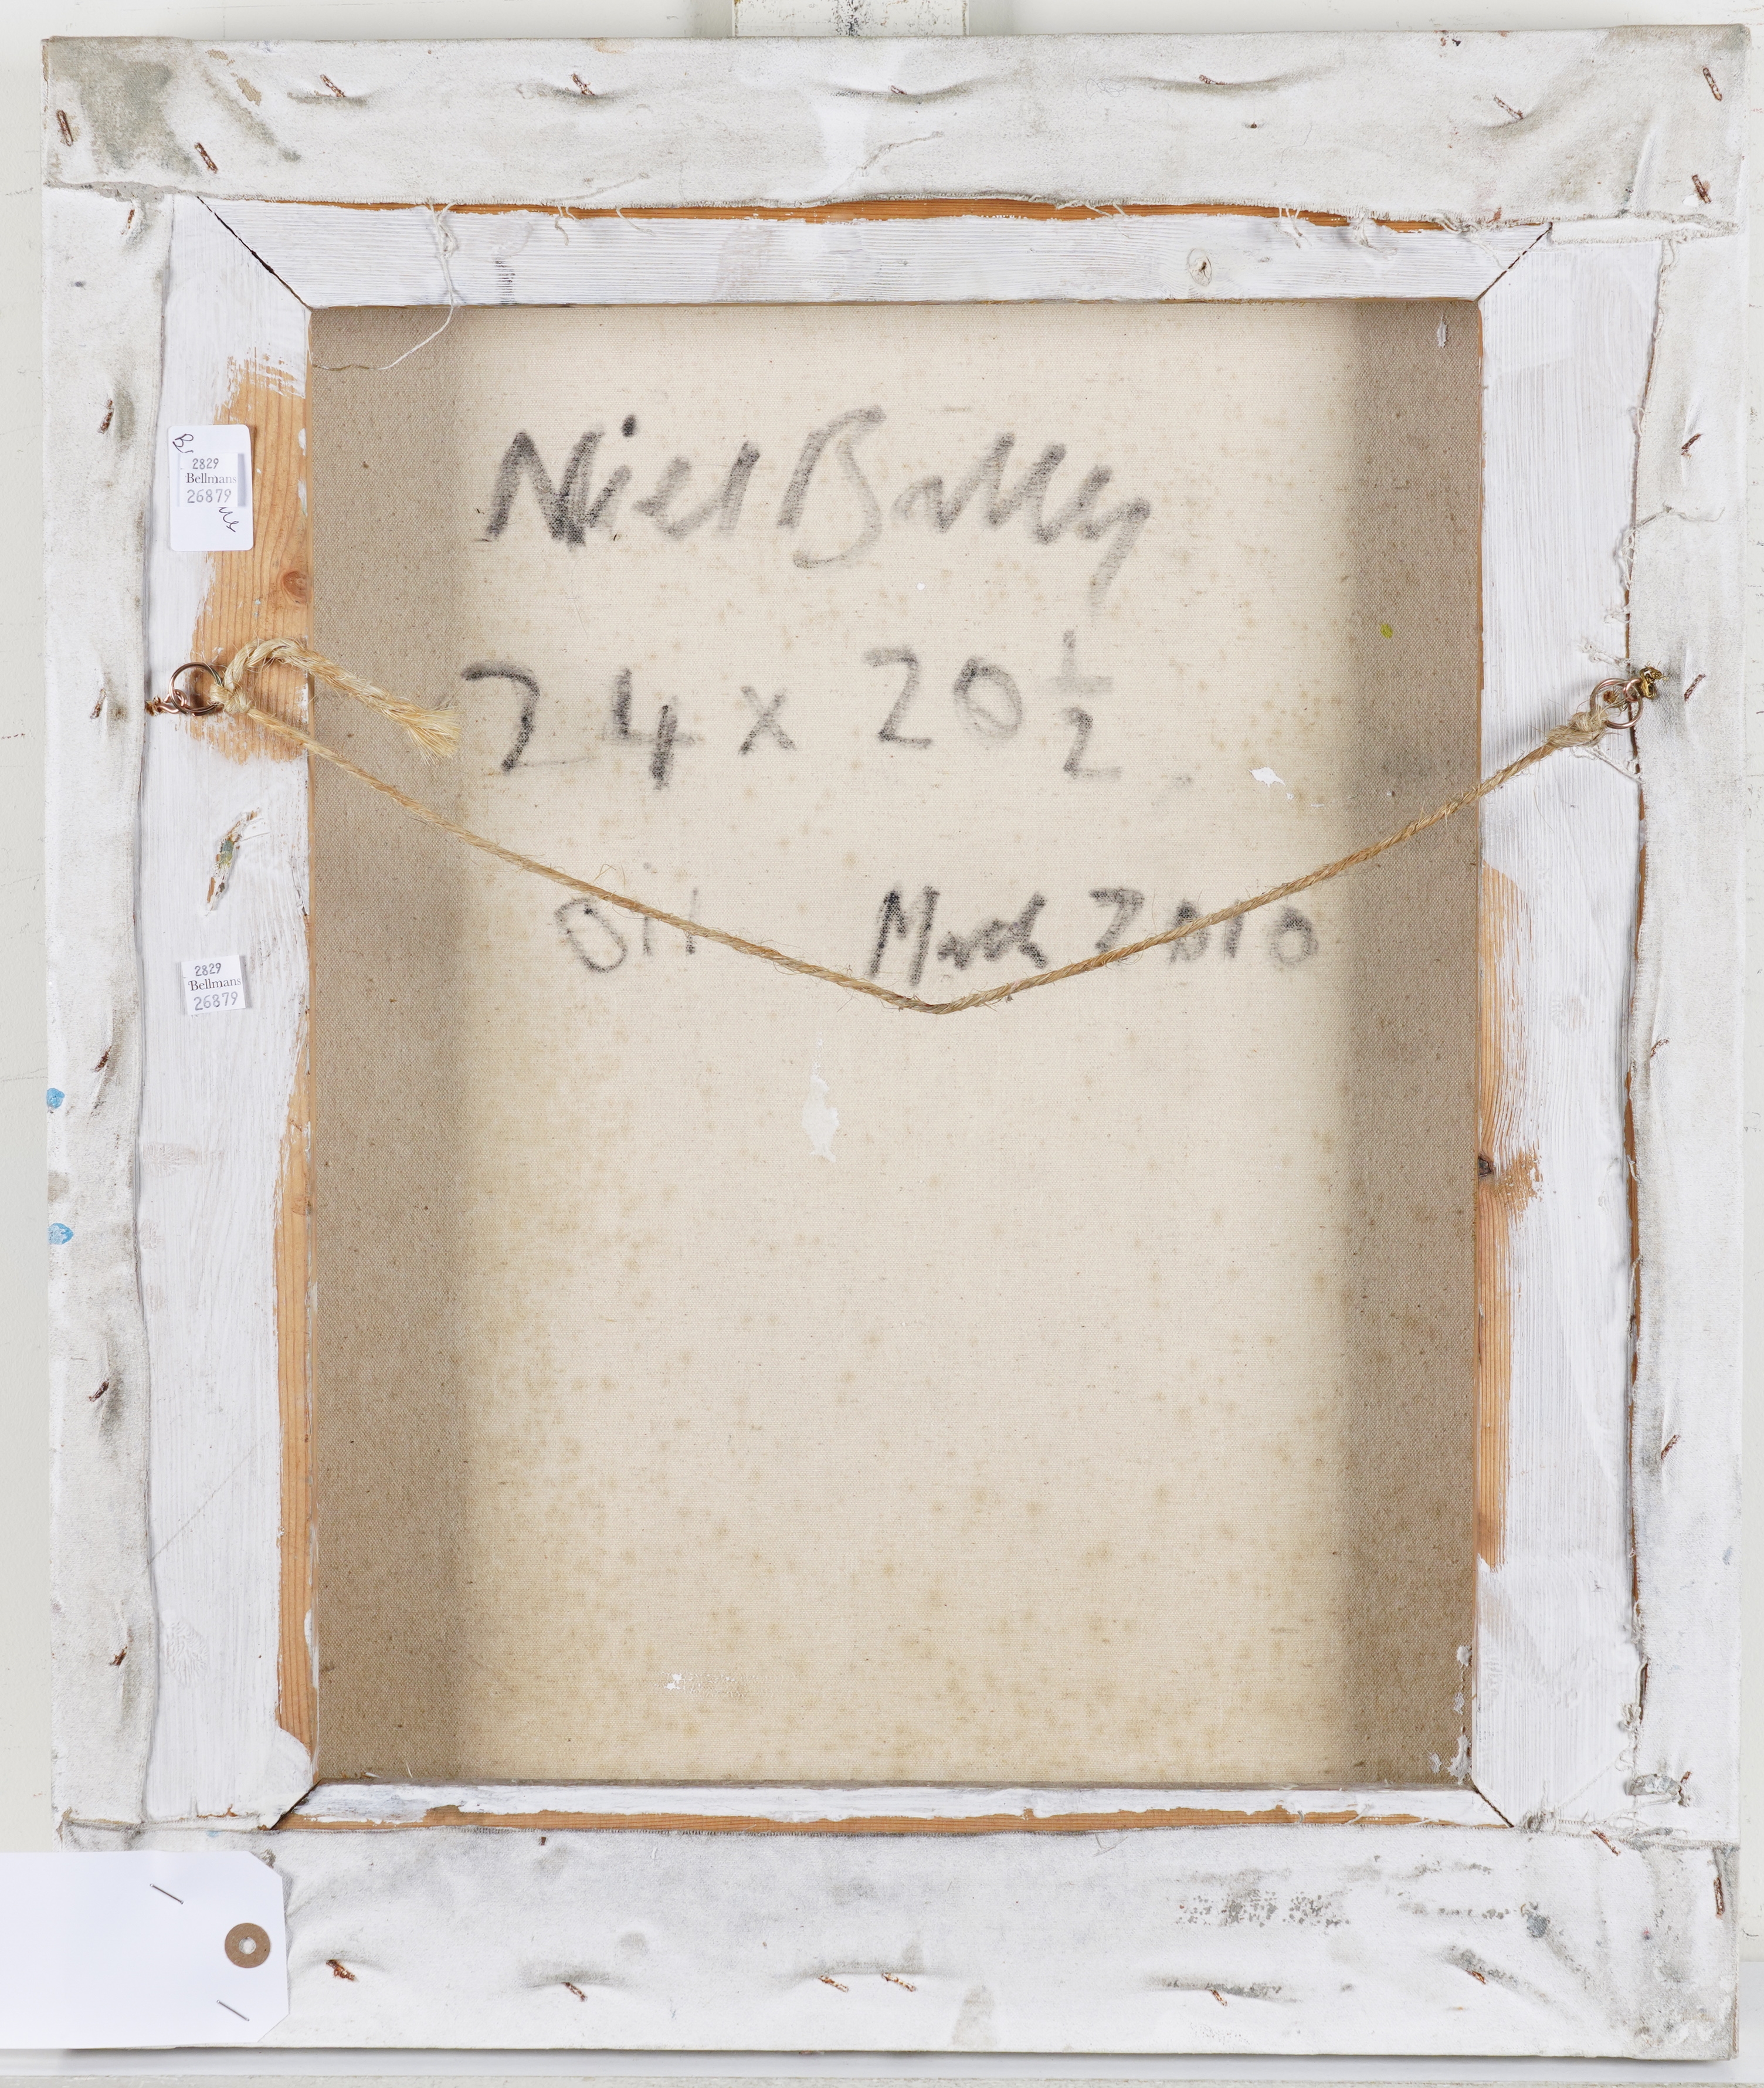 Niel Bally
24 x 20 1/2
Oil March 2010
2829
Bellmans
26879
2829
Bellmans
26879